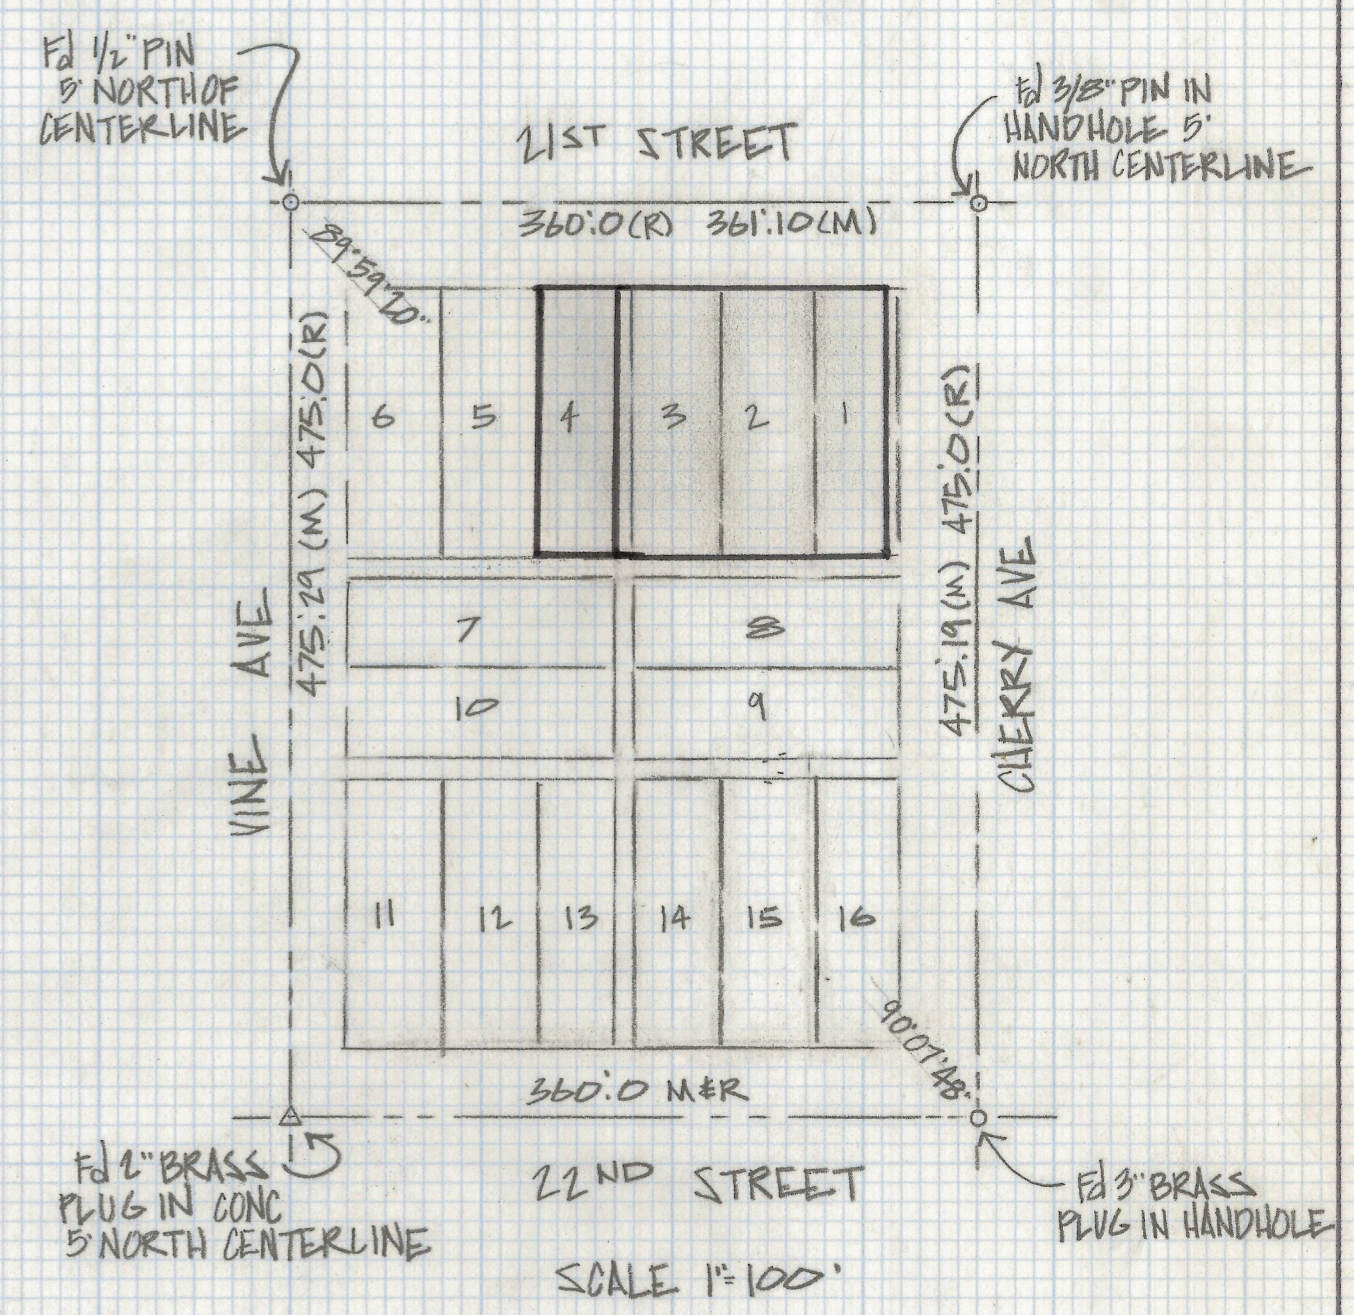 Fd 1/2" PIN
5' NORTH OF
CENTERLINE
Fd 3/8" PIN IN
HANDHOLE 5'
NORTH CENTERLINE
21ST STREET
360.'0 (R) 361.'10 (M)
89°59'20"
475.'29 (M) 475.'0 (R)
VINE AVE
475.'19 (M) 475.'0 (R)
CHERRY AVE
6 5 4 3 2 1
7 8
10 9
11 12 13 14 15 16
90°07'48"
360.'0 M&R
22ND STREET
Fd 2" BRASS
PLUG IN CONC
5' NORTH CENTERLINE
Fd 3" BRASS
PLUG IN HANDHOLE
SCALE 1"=100'